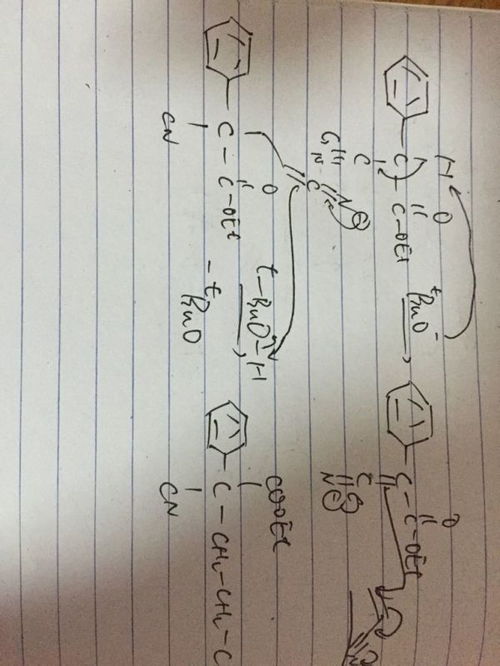 H O
C – C – OEt
C
N
tBuO⁻
O
C – C – OEt
C
N
C – C – OEt
O
CN
C
N
t-BuO-H
- tBuO
COOEt
C – CH₂ – CH₂ – C
CN